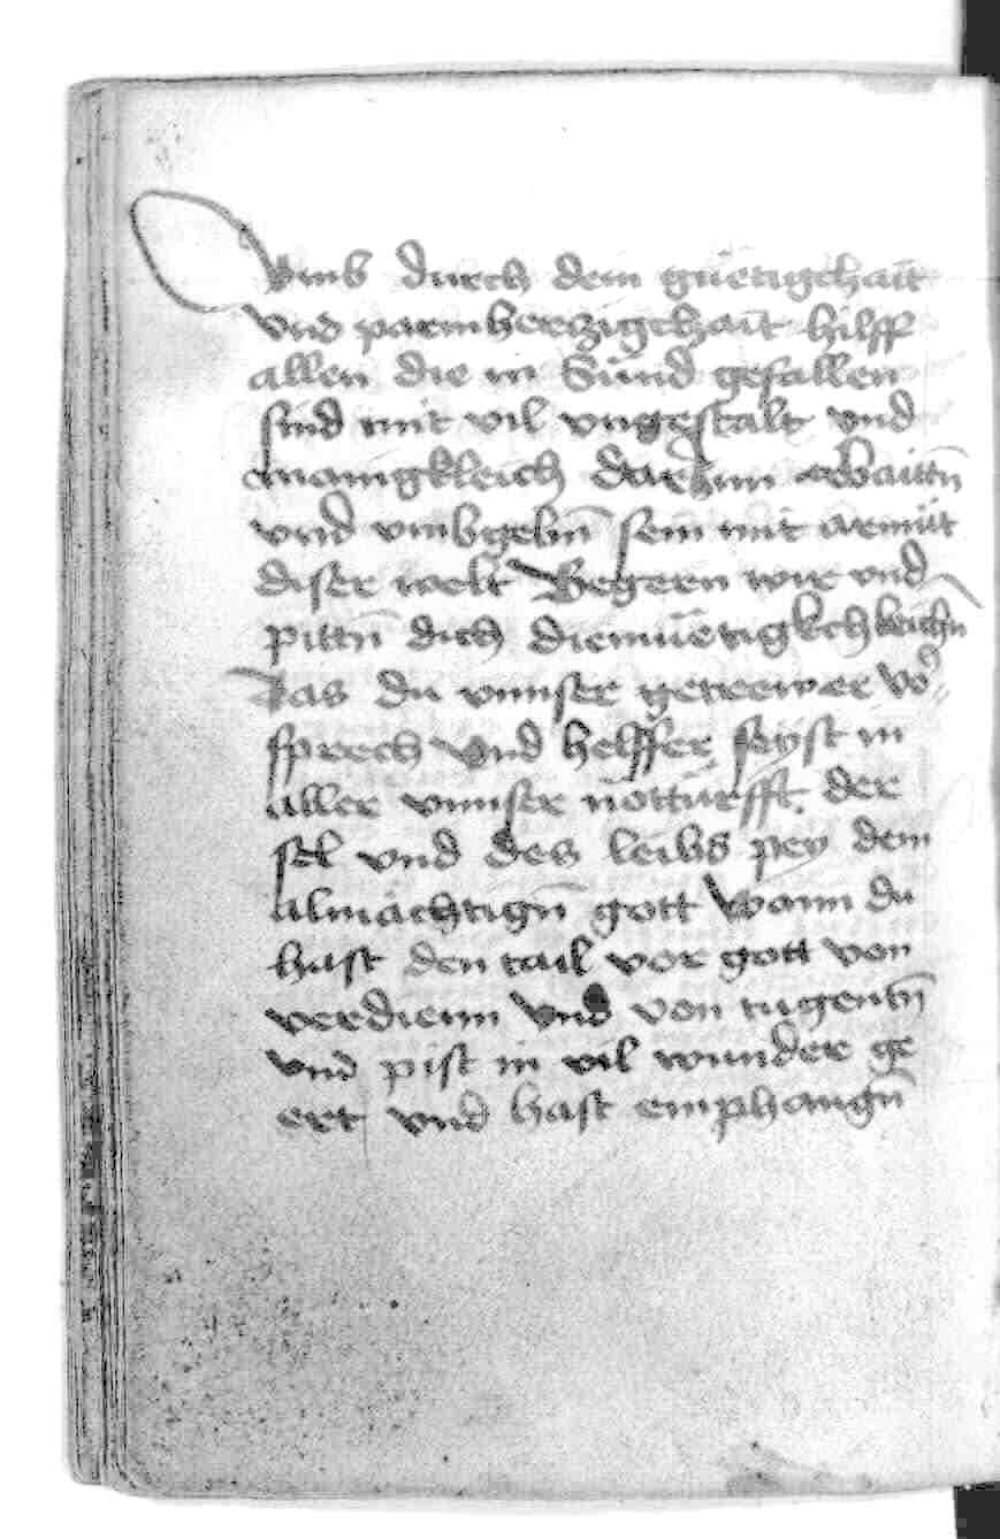 vmb durch dein guetigchait
vnd parmherczigchait hilff
allen die in Sünd gefallen
sind mit vil vngestalt vnd
manigkleich darinn arbaittn̄
vnd vmbgebn̄ sein mit armüt
diser welt Begern wir vnd
pittn̄ dich diemüetigkchleichn̄
das du vnnser getrewer vor
sprech vnd helffer seyst in
aller vnnser notturfft der
sel vnd des leibs pey dem
almächtign̄ gott wann du
hast den tail vor gott von
verdienn vnd von tugentn̄
vnd pist in vil wunder ge
ert vnd hast emphangn̄